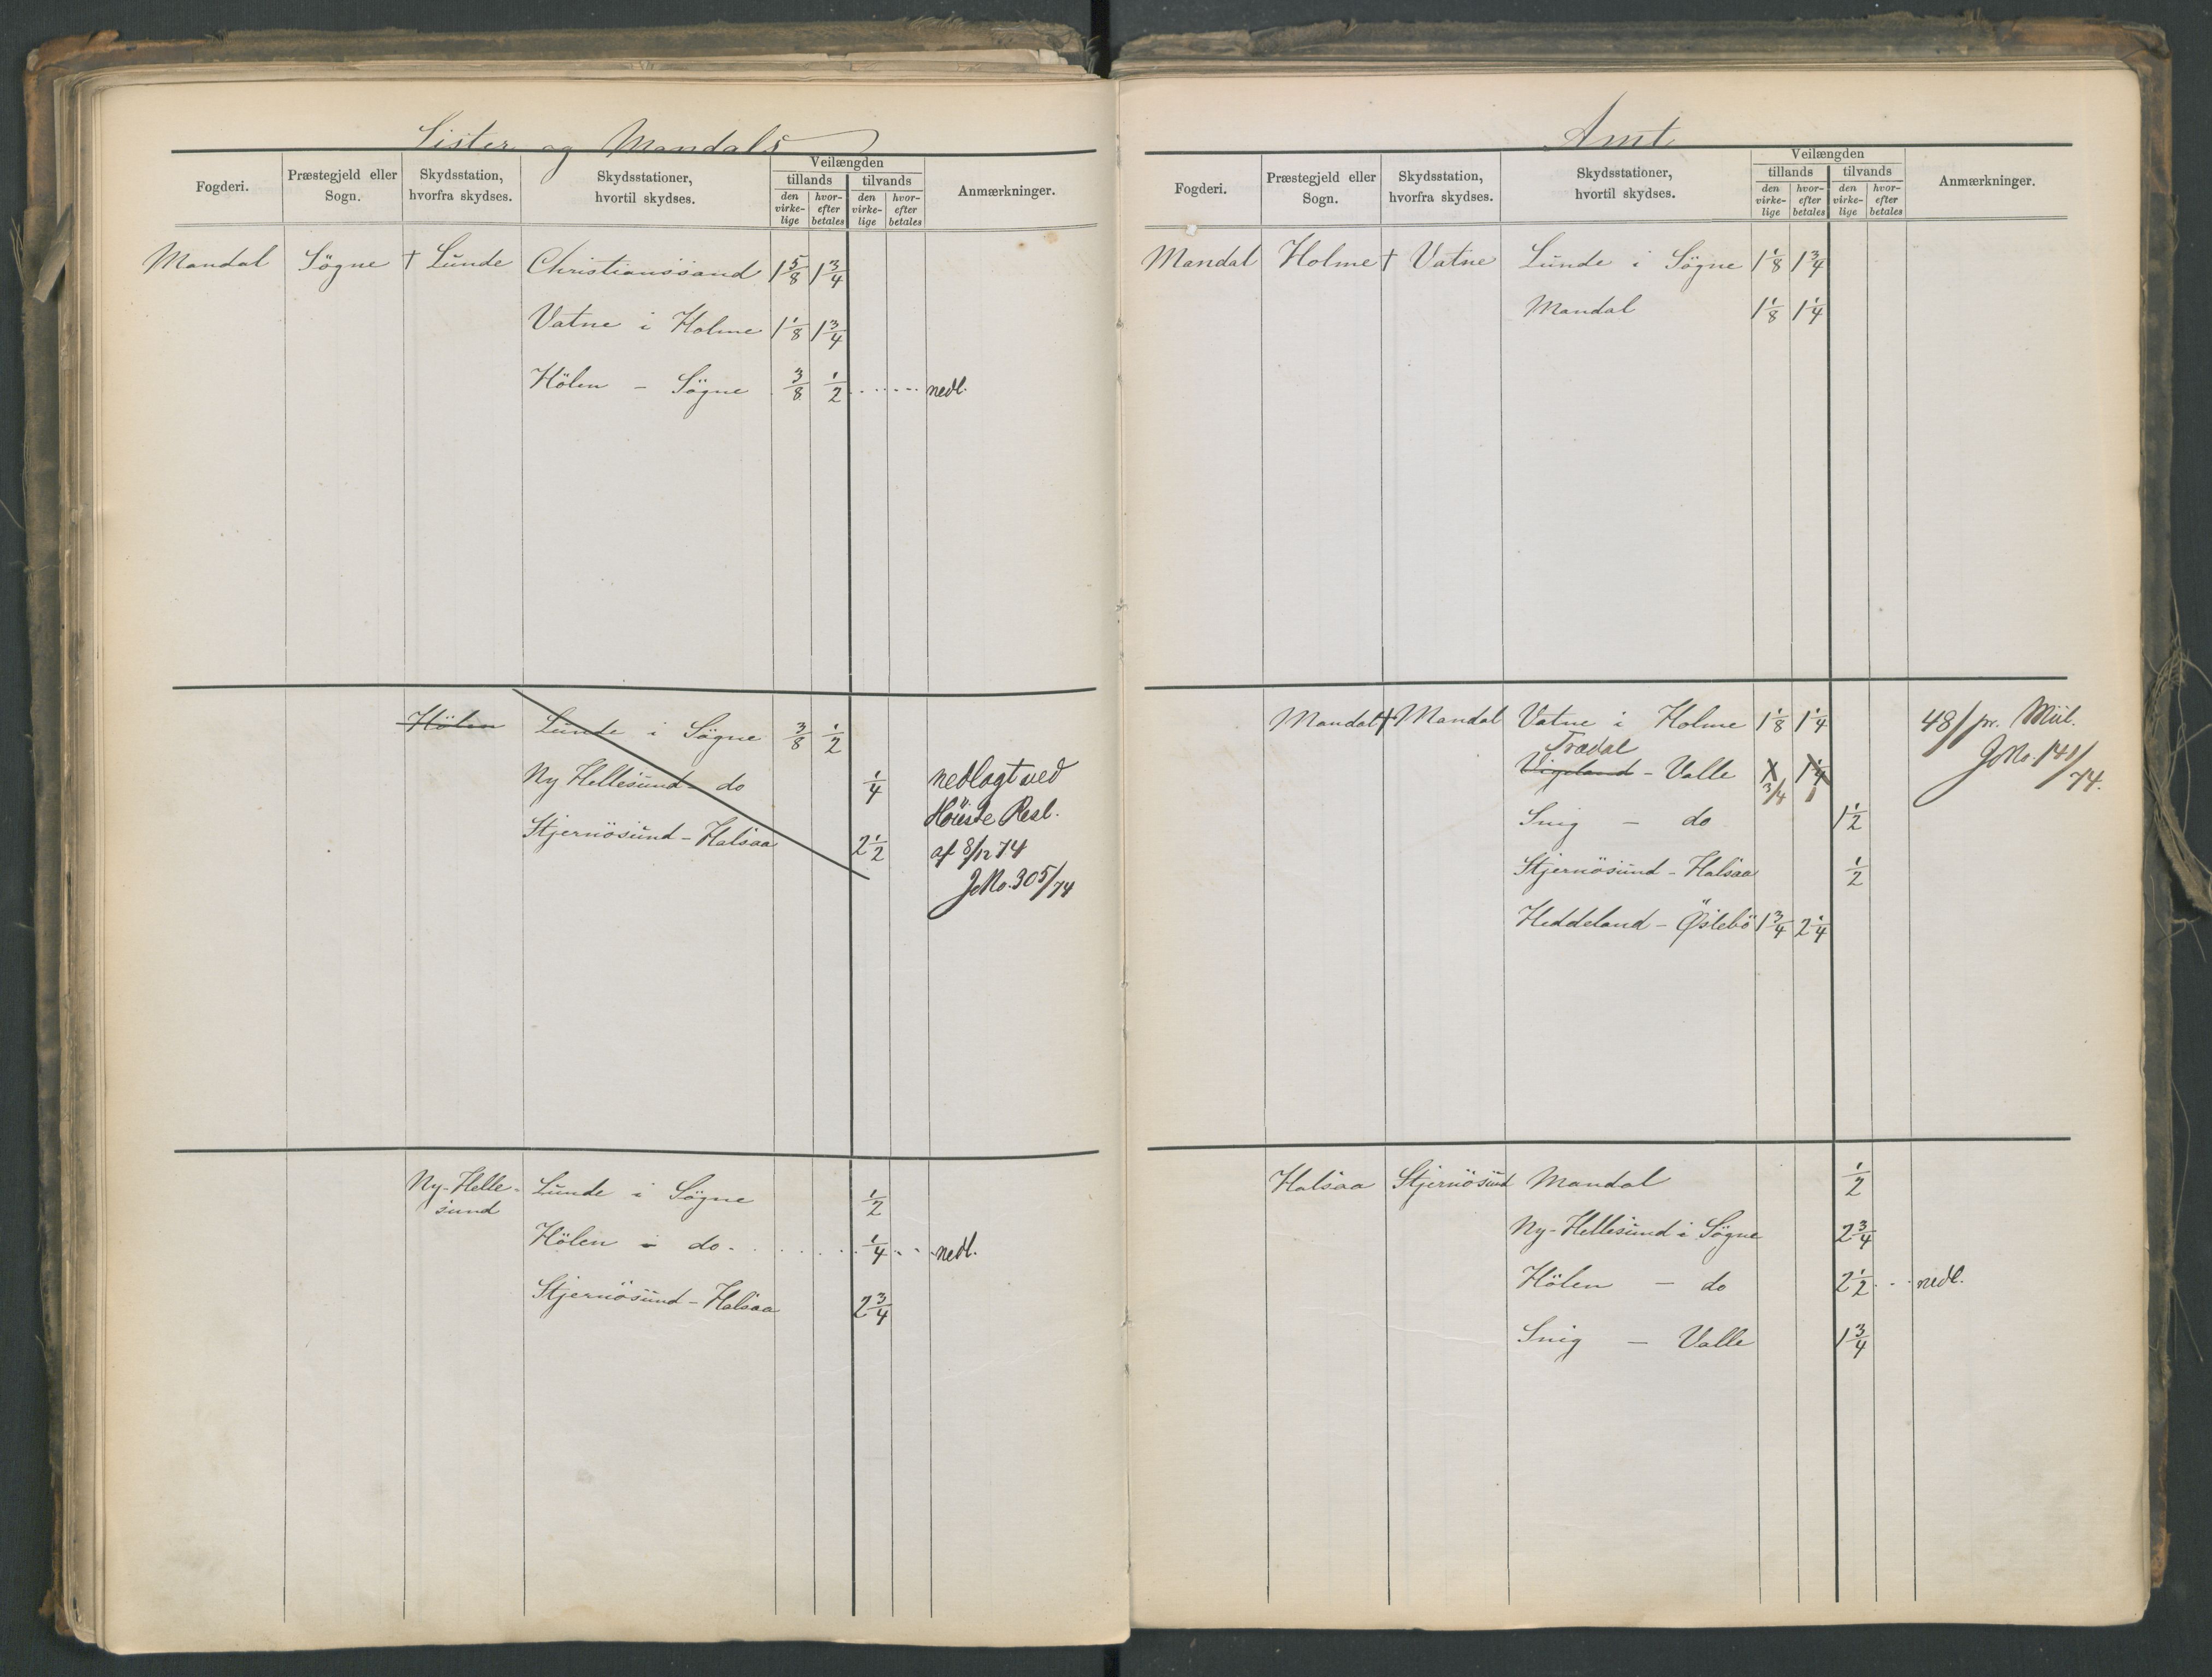 Lister og Mandals
Fogderi. Præstegjeld eller Sogn. Skydsstation, hvorfra skydses. Skydsstationer, hvortil skydses. Veilængden tillands den virkelige hvorefter betales tilvands den virkelige hvorefter betales Anmærkninger.
Mandal Søgne † Lunde Christianssand 1 5/8 1 3/4
Vatne i Holme 1 1/8 1 3/4
Hölen - Søgne 3/8 1/2 ...... nedl.
Hölen Lunde i Søgne 3/8 1/2
Ny Hellesund - do 1/4 nedlagt ved
Høieste Resl.
Stjernösund - Halsaa 2 1/2 af 8/12 74
JNo. 305/74
Ny-Helle- Lunde i Søgne 1/2
sund
Hölen i do. . . . . . . 1/4 . . . nedl.
Stjernösund - Halsaa 2 3/4
Amt
Fogderi. Præstegjeld eller Sogn. Skydsstation, hvorfra skydses. Skydsstationer, hvortil skydses. Veilængden tillands den virkelige hvorefter betales tilvands den virkelige hvorefter betales Anmærkninger.
Mandal Holme † Vatne Lunde i Søgne 1 1/8 1 3/4
Mandal 1 1/8 1 1/4
Mandal † Mandal Vatne i Holme 1 1/8 1 1/4 48 / pr. Miil.
Tradal JNo. 141/74.
Vigeland - Valle 1 1 1/4
3/4 1
Snig - do 1 1/2
Stjernösund - Halsaa 1/2
Heddeland - Öslebö 1 3/4 2 1/4
Halsaa Stjernösund Mandal 1/2
Ny-Hellesund i Søgne 2 3/4
Hölen - do 2 1/2 . . . nedl.
Snig - Valle 1 3/4